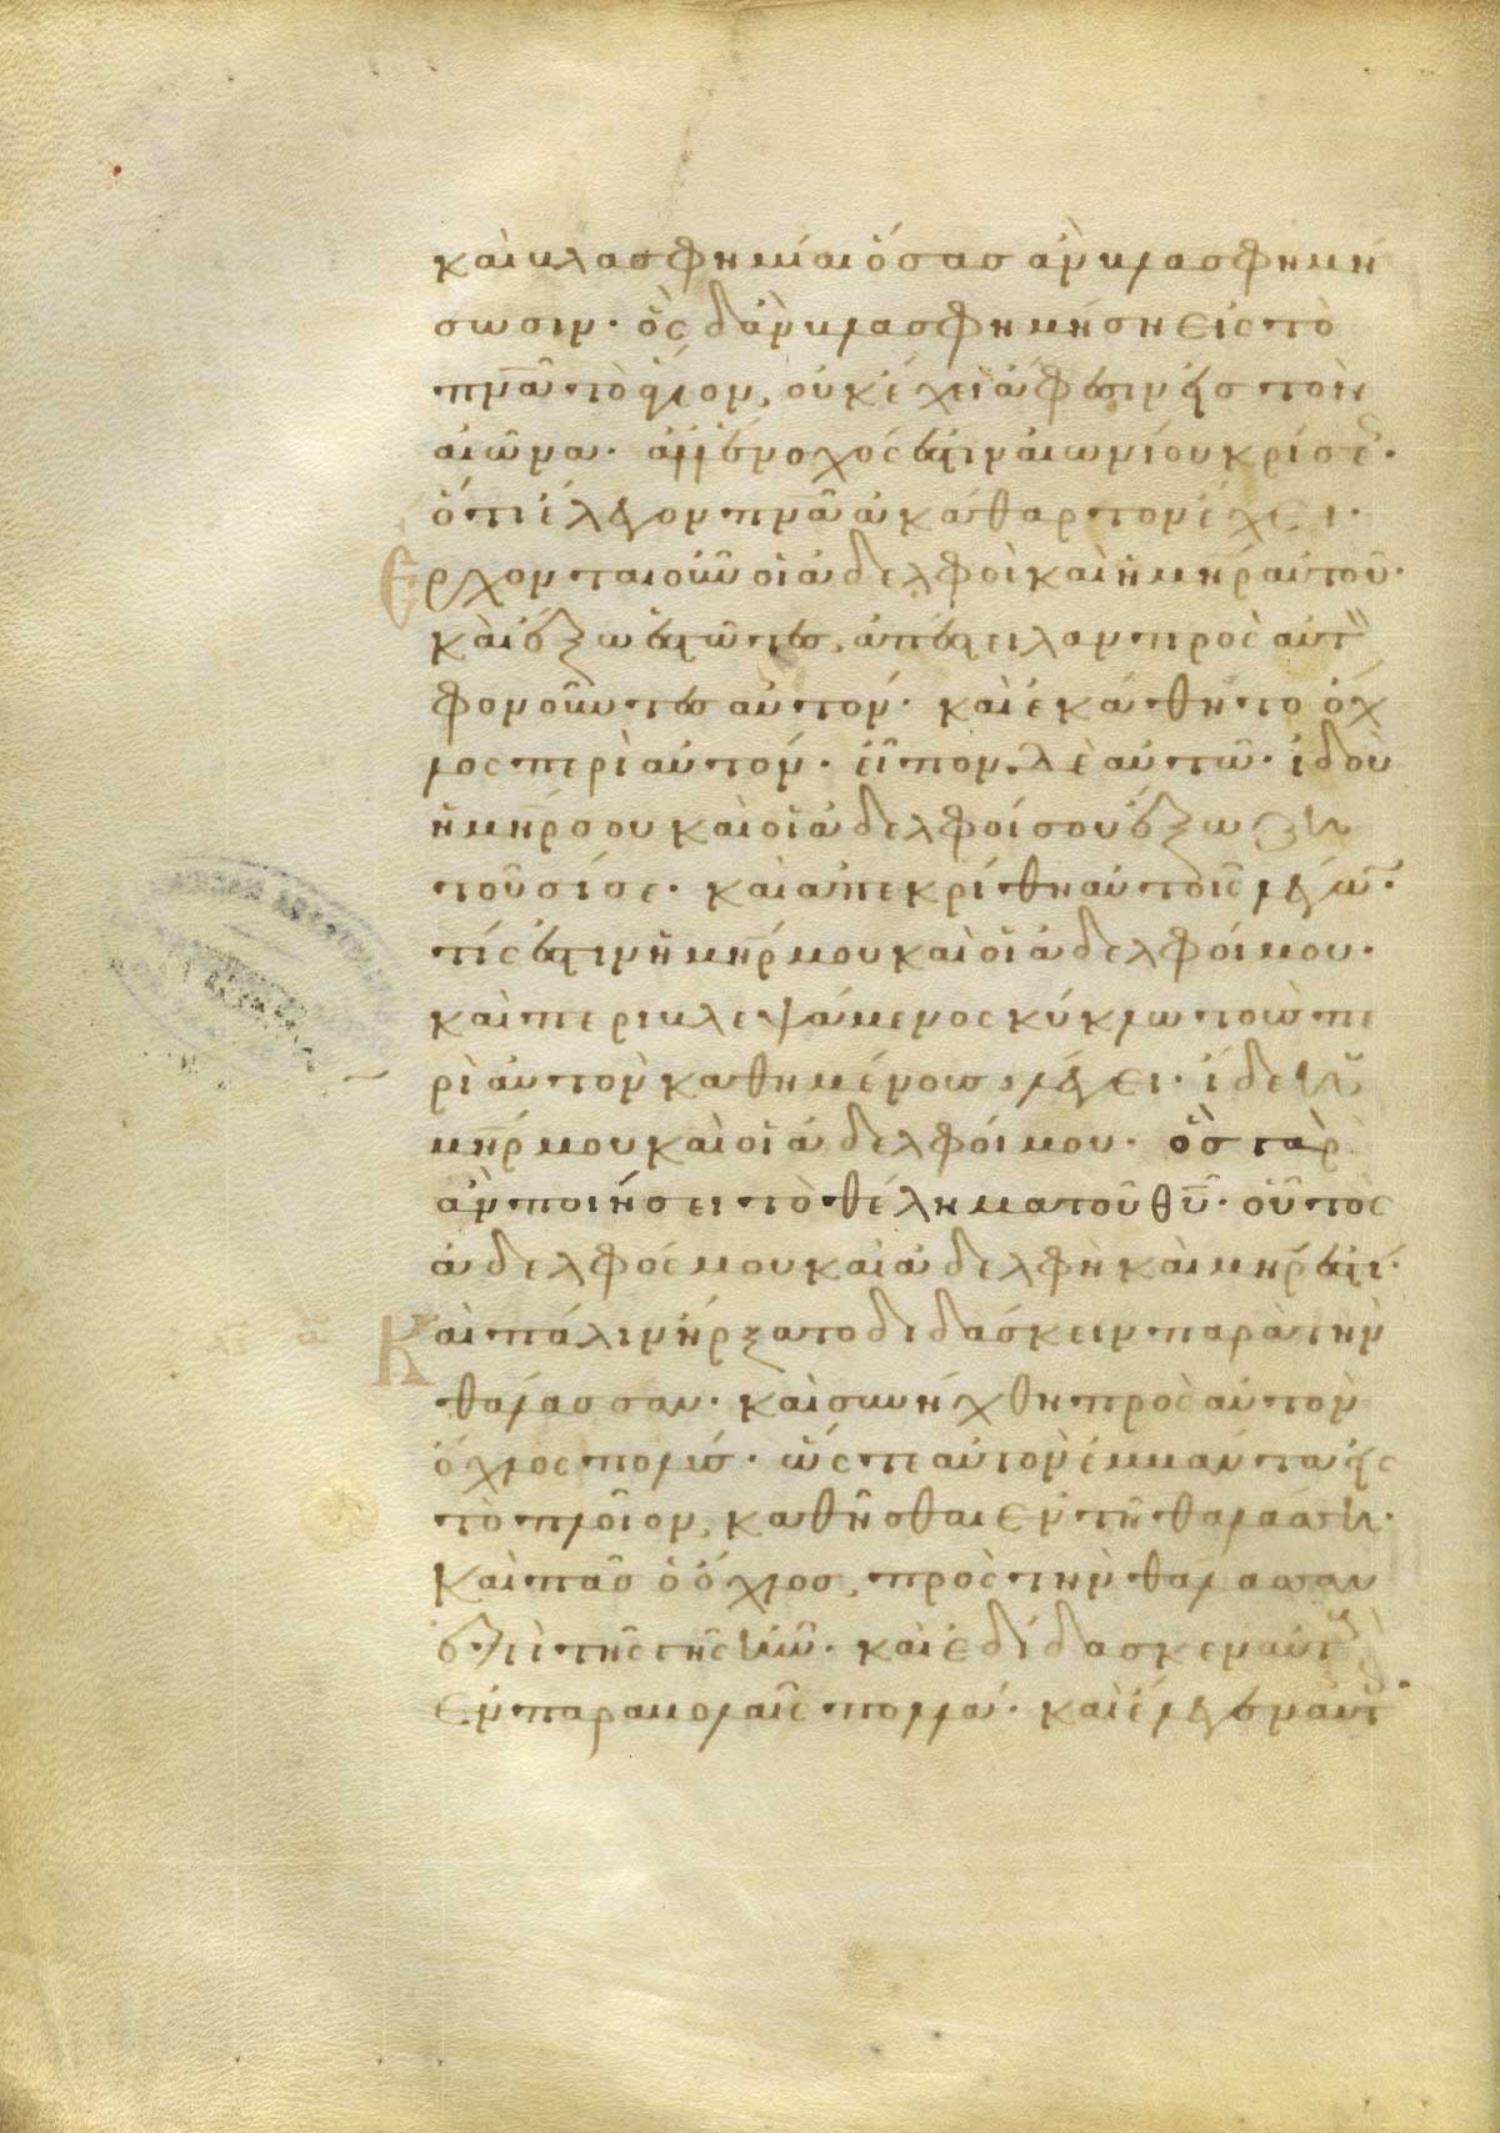 καὶ βλασφημίαι ὅσας ἂν βλασφημή
σωσιν· ὃς δ' ἂν βλασφημήση εἰς τὸ
πνᾶ τὸ ἅγιον, οὐκ ἔχει ἄφεσιν εἰς τὸν
αἰῶνα· ἀλλ' ἔνοχός ἐστιν αἰωνίου κρίσε·
ὅτι ἔλεγον πνᾶ ἀκάθαρτον ἔχει·
Ερχονται οὖν οἱ ἀδελφοὶ καὶ ἡ μηρ αὐτοῦ·
καὶ ἔξω ἑστῶτες, ἀπέστειλαν πρὸς αὐτ
φονοῦντες αὐτόν· καὶ ἐκάθητο ὄχ
λος περὶ αὐτόν· εἶπον δὲ αὐτῶ· ἰδοὺ
ἡ μηρ σου καὶ οἱ ἀδελφοί σου ἔξω ζη
τοῦσί σε· καὶ ἀπεκρίθη αὐτοῖς λέγων·
τίς ἐστιν ἡ μηρ μου καὶ οἱ ἀδελφοί μου·
καὶ περιβλεψάμενος κύκλω τοὺς πε
ρὶ αὐτὸν καθημένους, λέγει· ἴδε ἡ
μηρ μου καὶ οἱ ἀδελφοί μου· ὃς γὰρ
ἂν ποιήσει τὸ θέλημα τοῦ θυ· οὗτος
ἀδελφός μου καὶ ἀδελφὴ καὶ μηρ ἐστί·
Και πάλιν ἤρξατο διδάσκειν παρὰ τὴν
θαλασσαν· καὶ συνήχθη πρὸς αὐτὸν
ὄχλος πολύς· ὥςτε αὐτὸν ἐμβάντα εἰς
τὸ πλοῖον, καθῆσθαι ἐν τῆ θαλάσση·
καὶ πᾶς ὁ ὄχλος, πρὸς τὴν θάλασσαν
ἐπὶ τῆς γῆς ἦν· καὶ ἐδίδασκεν αὐτ
ἐν παραβολαῖς πολλά· καὶ ἔλεγεν αὐτ